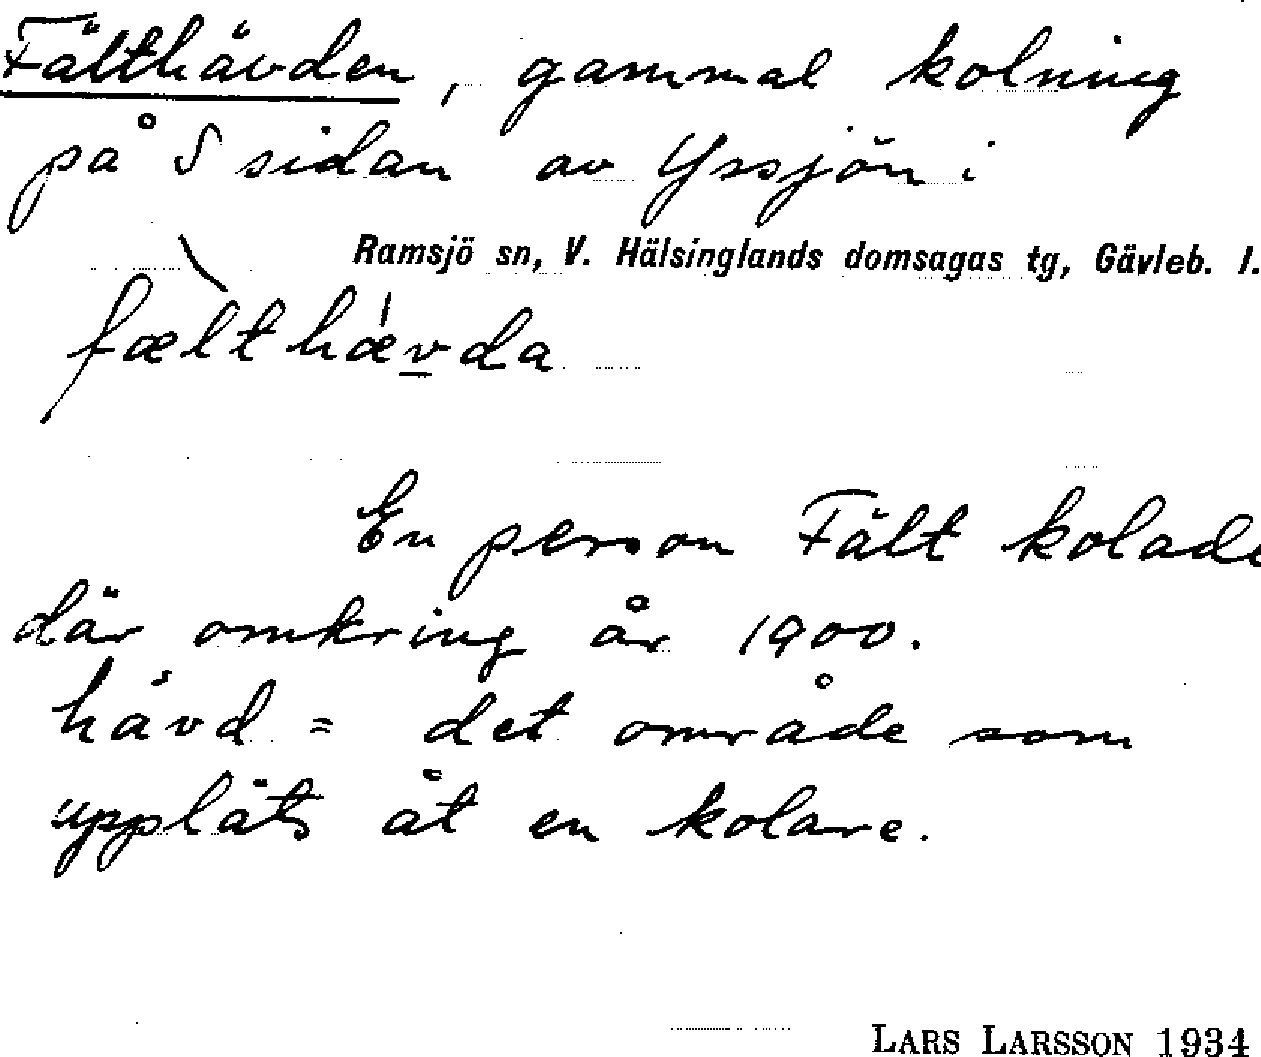 Fälthävden, gammal kolning
på S sidan av Yssjön i
Ramsjö sn, V. Hälsinglands domsagas tg, Gävleb. l.
f\ælth'ævda
En person Fält kolade
där omkring år 1900.
hävd = det område som
uppläts åt en kolare.
LARS LARSSON 1934